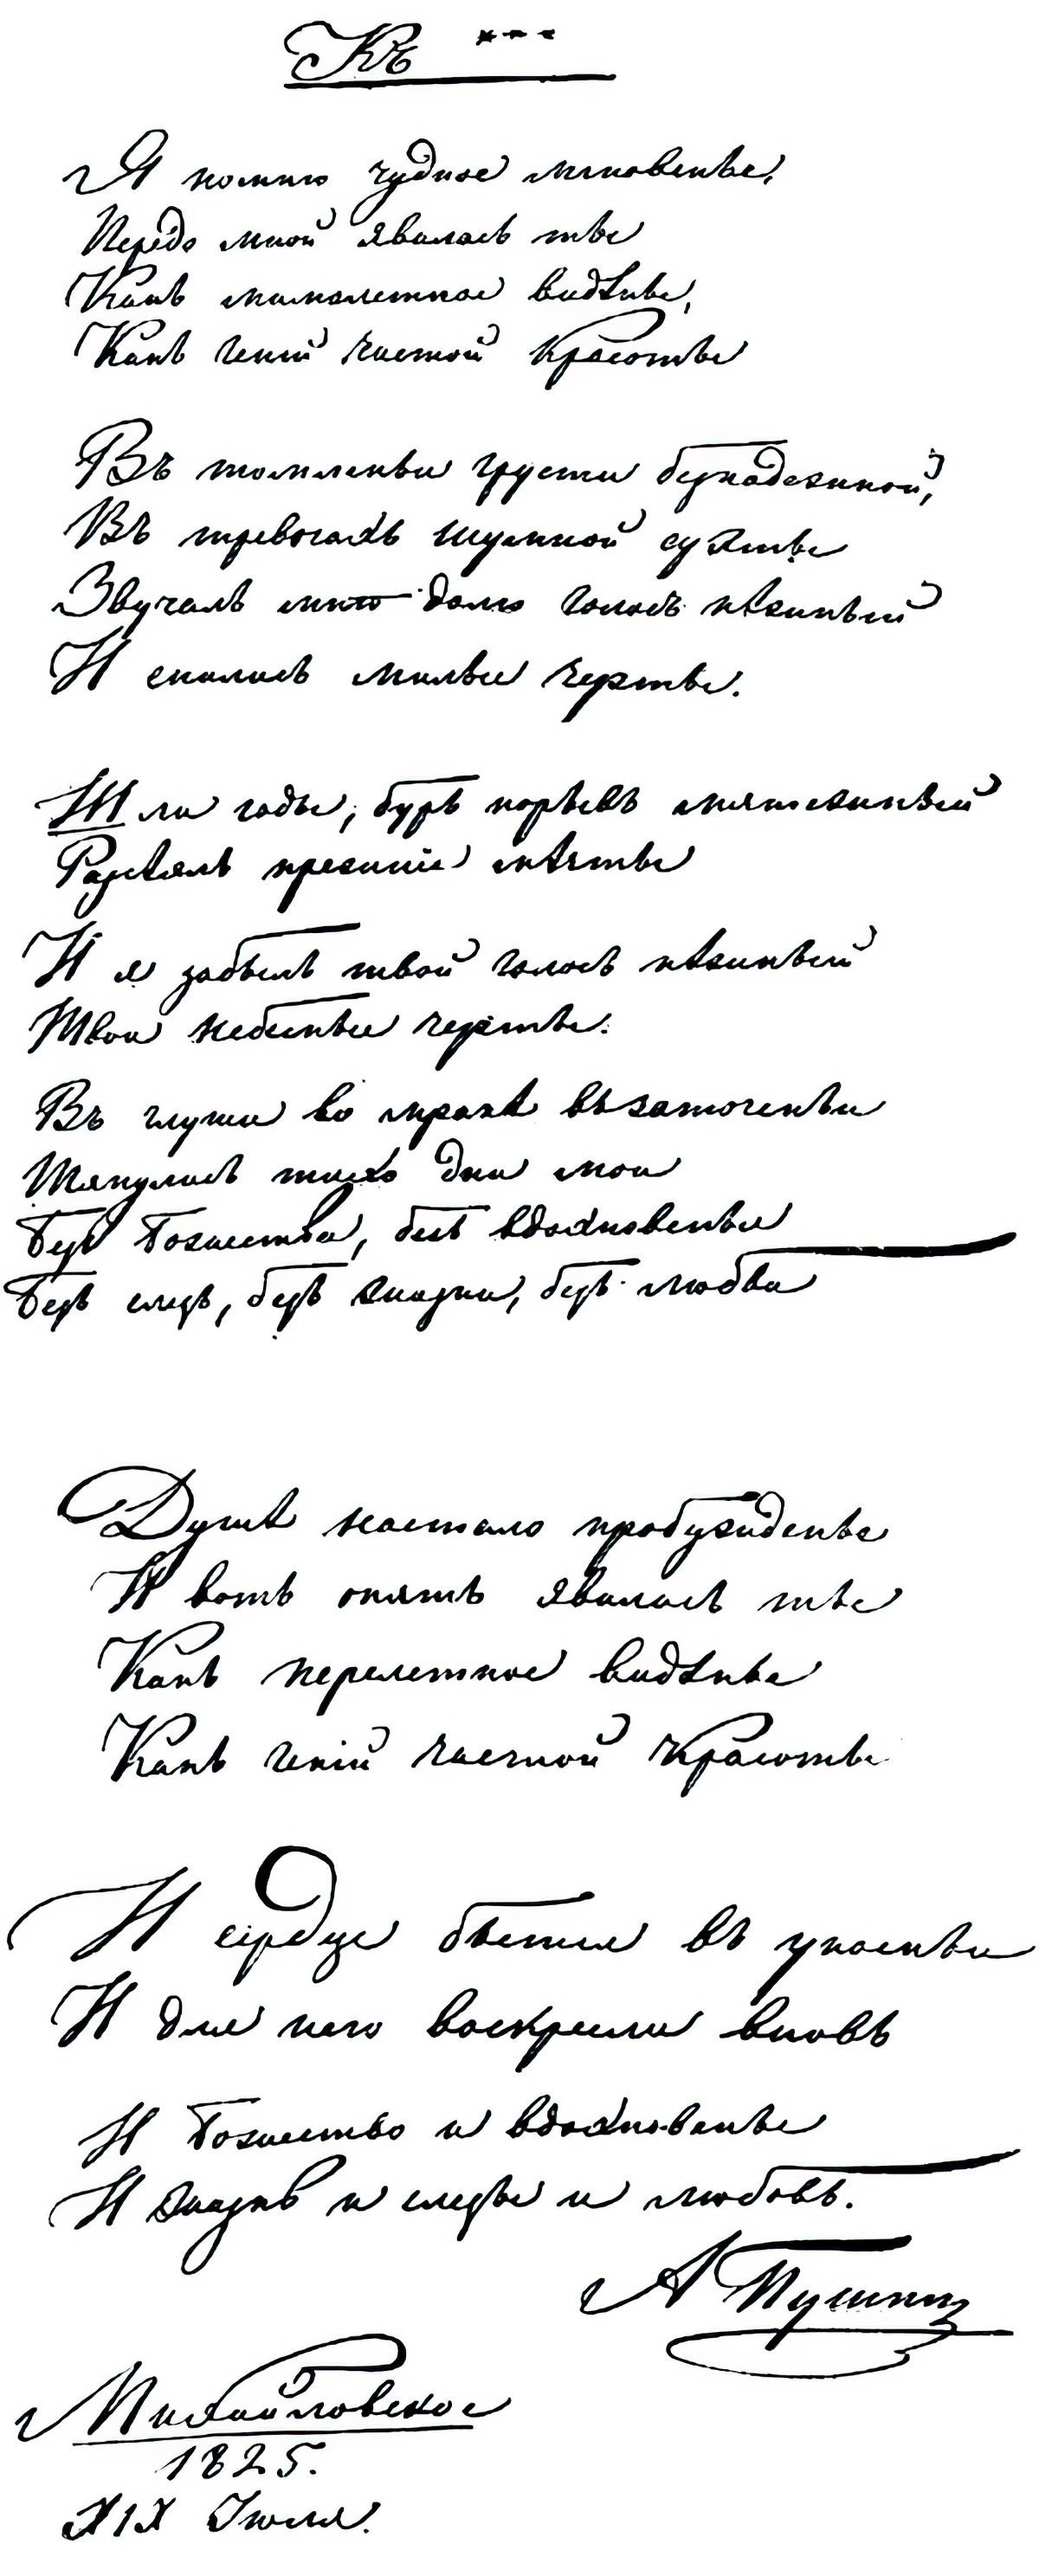 Къ ***
Я помню чудное мгновенье,
Передо мной явилась ты
Какъ мимолетное видѣнье,
Какъ Геній чистой Красоты
Въ томленьи грусти безнадежной,
Въ тревогахъ шумной суэты
Звучалъ мнѣ долго голосъ нѣжный
И снились милые черты.
Шли годы, бурь порывъ мятежный
Разсѣялъ прежнии мѣчты
И я забылъ твой голосъ нѣжный
Твои небесные черты.
Въ глуши во мракѣ въ заточеньи
Тянулись тихо дни мои
Безъ Божества, безъ вдохновенья
Безъ слезъ, безъ жизни, безъ любви
Душѣ настало пробужденье
И вотъ опять явилась ты
Какъ перелетное видѣнье
Какъ Геній чистой Красоты
И сердце бьется въ упоеньи
И для него воскресли вновь
И Божество и вдохновенье
И жизнь и слезы и любовь.
А Пушкин
Михайловское
1825.
XIX Июля.